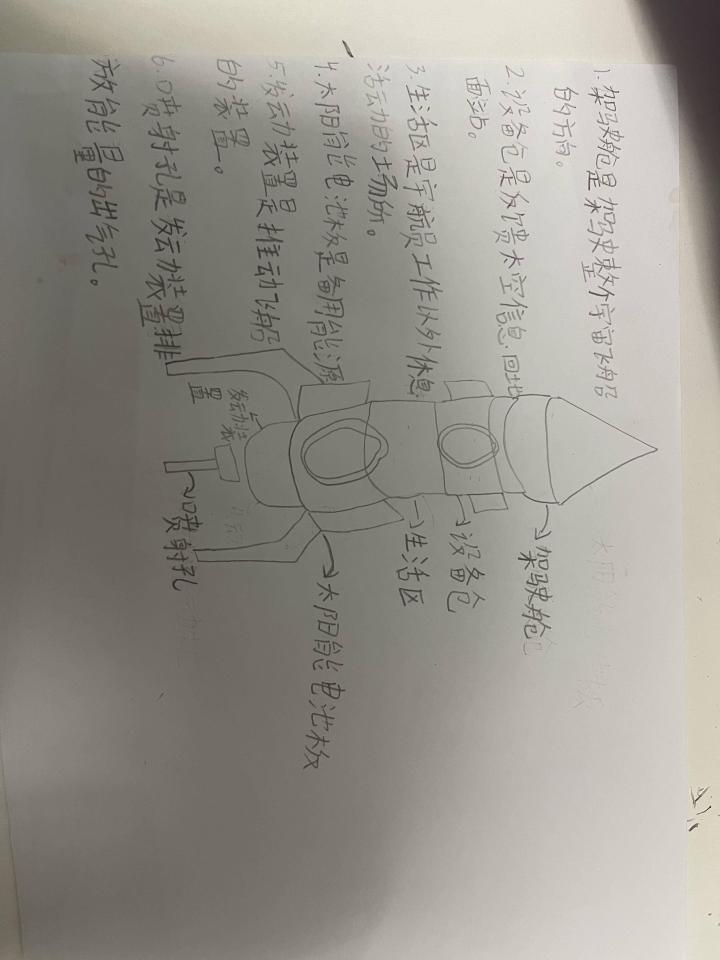 1.架驶舱是架驶整个宇宙飞船
的方向。
2.设备仓是反馈太空信息.回地
面站。
3.生活区是宇航员工作以外休息
活动的场所。
4.太阳能电池板是备用能源
5.发动装置是推动飞船
的装置。
6.喷射孔是发动装置排
放能量的出气孔。
架驶舱
设备仓
生活区
太阳能电池板
发动装
置
喷射孔